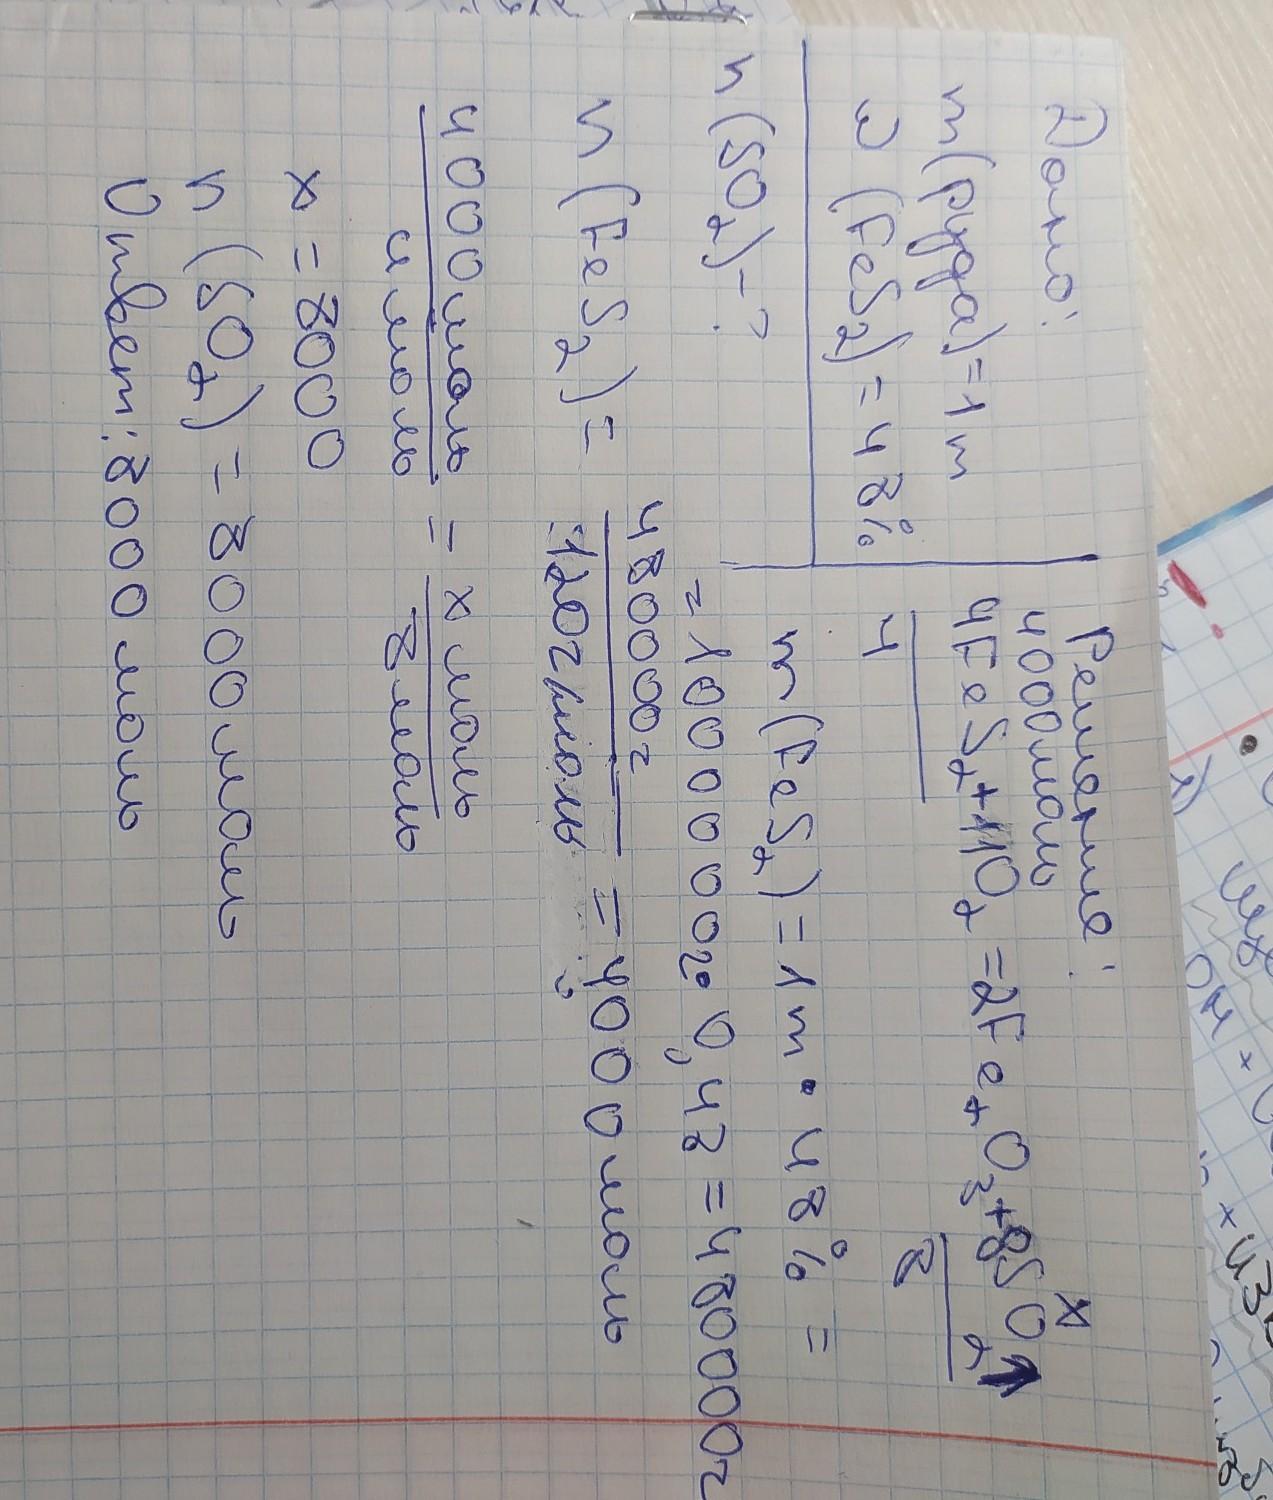 Дано:
m(руда)=1т
ω(FeS2)=48%
n(SO2)-?
Решение:
4000моль x
4FeS2+11O2=2Fe2O3+8SO2↑
4 8
m(FeS2)=1т•48%=
=1000000г•0,48=480000г
n(FeS2)=480000г/120г/моль=4000моль
4000моль/4моль=xмоль/8моль
x=8000
n(SO2)=8000моль
Ответ:8000моль